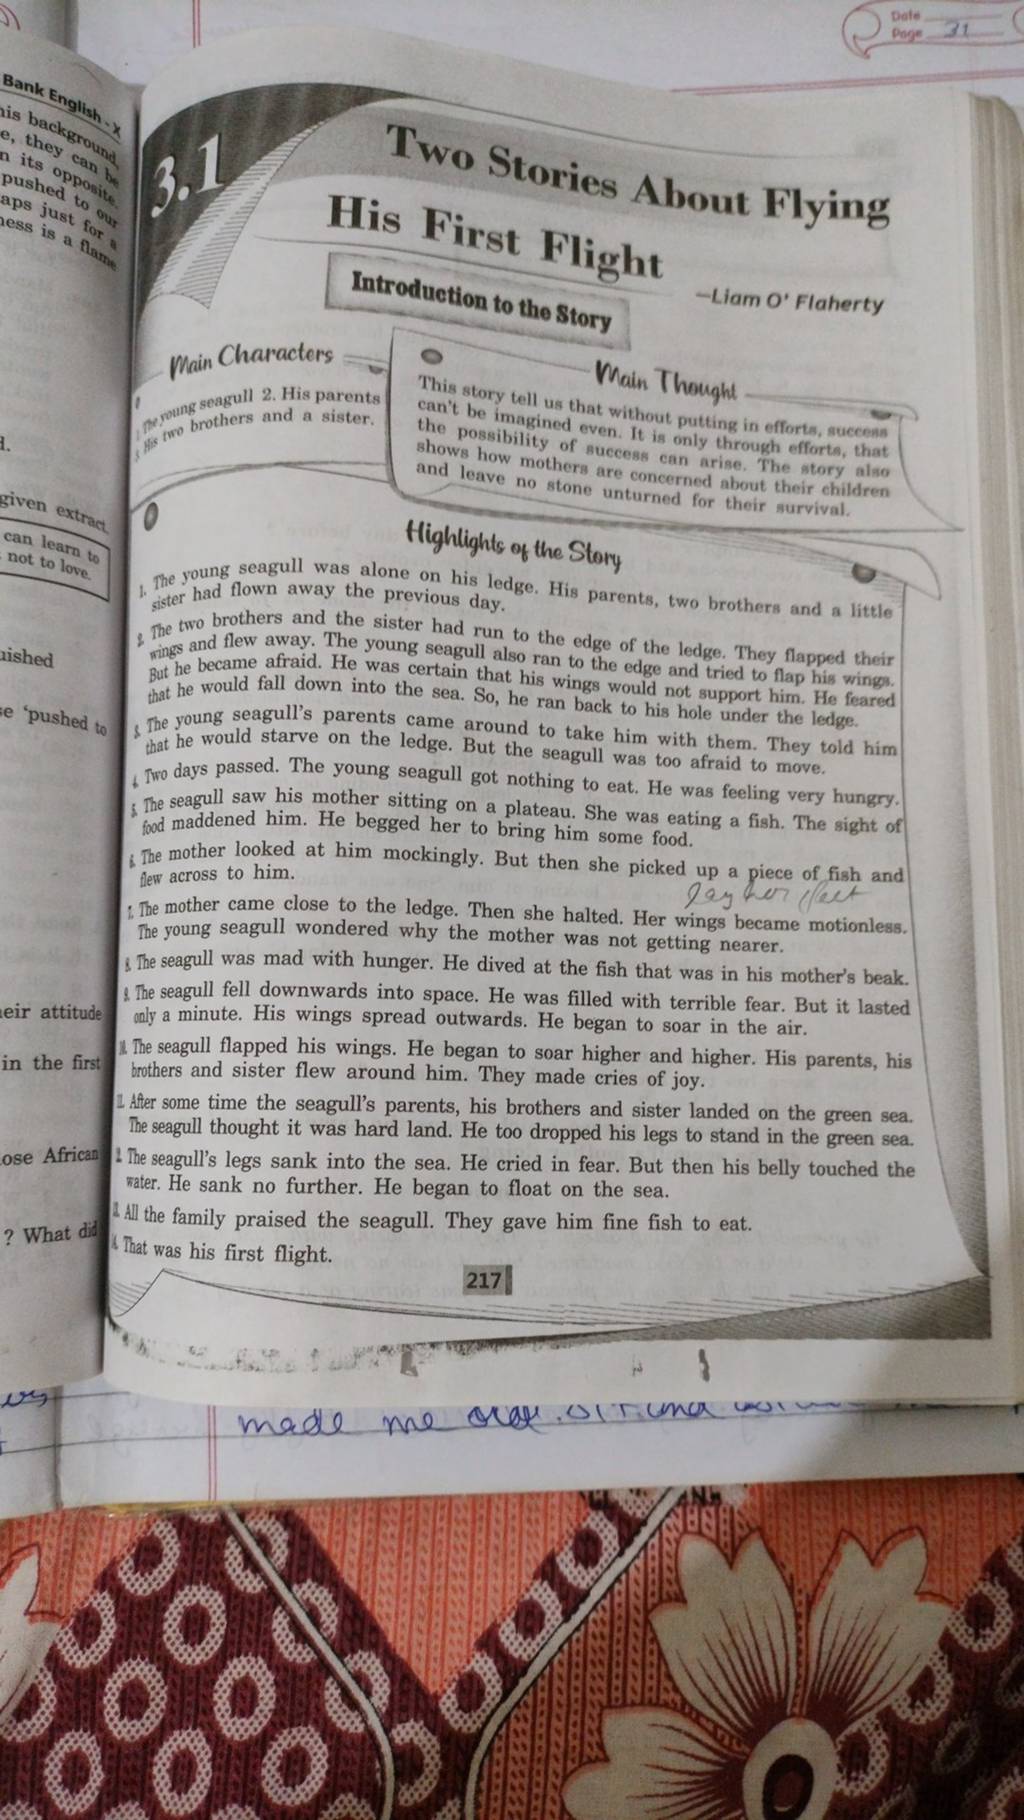 Date
Page 31
Bank English - X
his background,
e, they can be
n its opposite.
pushed to our
aps just for a
ness is a flame
given extract.
can learn to
not to love.
uished
se 'pushed to
eir attitude
in the first
ose African
? What did
3.1
Two Stories About Flying
His First Flight
–Liam O' Flaherty
Introduction to the Story
Main Characters
1. The young seagull 2. His parents
3. His two brothers and a sister.
Main Thought
This story tell us that without putting in efforts, success
can't be imagined even. It is only through efforts, that
the possibility of success can arise. The story also
shows how mothers are concerned about their children
and leave no stone unturned for their survival.
Highlights of the Story
1. The young seagull was alone on his ledge. His parents, two brothers and a little
sister had flown away the previous day.
2. The two brothers and the sister had run to the edge of the ledge. They flapped their
wings and flew away. The young seagull also ran to the edge and tried to flap his wings.
But he became afraid. He was certain that his wings would not support him. He feared
that he would fall down into the sea. So, he ran back to his hole under the ledge.
3. The young seagull's parents came around to take him with them. They told him
that he would starve on the ledge. But the seagull was too afraid to move.
4. Two days passed. The young seagull got nothing to eat. He was feeling very hungry.
5. The seagull saw his mother sitting on a plateau. She was eating a fish. The sight of
food maddened him. He begged her to bring him some food.
6. The mother looked at him mockingly. But then she picked up a piece of fish and
flew across to him.
7. The mother came close to the ledge. Then she halted. Her wings became motionless.
The young seagull wondered why the mother was not getting nearer.
8. The seagull was mad with hunger. He dived at the fish that was in his mother's beak.
9. The seagull fell downwards into space. He was filled with terrible fear. But it lasted
only a minute. His wings spread outwards. He began to soar in the air.
10. The seagull flapped his wings. He began to soar higher and higher. His parents, his
brothers and sister flew around him. They made cries of joy.
11. After some time the seagull's parents, his brothers and sister landed on the green sea.
The seagull thought it was hard land. He too dropped his legs to stand in the green sea.
2. The seagull's legs sank into the sea. He cried in fear. But then his belly touched the
water. He sank no further. He began to float on the sea.
13. All the family praised the seagull. They gave him fine fish to eat.
4. That was his first flight.
217
made me